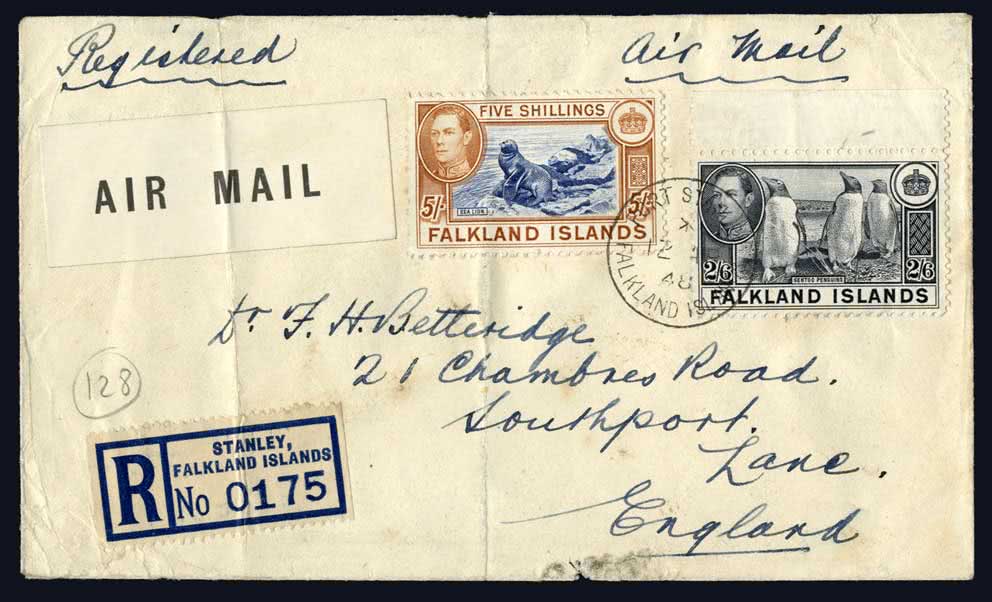 Registered
Air Mail
AIR MAIL
FIVE SHILLINGS
5/- SEA LION 5/-
FALKLAND ISLANDS
2/6 GENTOO PENGUINS 2/6
FALKLAND ISLANDS
PORT ST
48
FALKLAND IS
Dr F. H. Betteridge
21 Chambres Road.
Southport.
Lanc.
England
128
R
STANLEY,
FALKLAND ISLANDS
No 0175